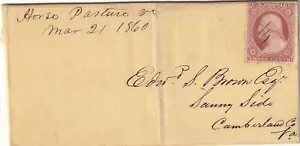 Horse Pasture va
Mar 21 1860
Edwd S. Brown Esqr
Sunny Side
Cumberland Co
Va